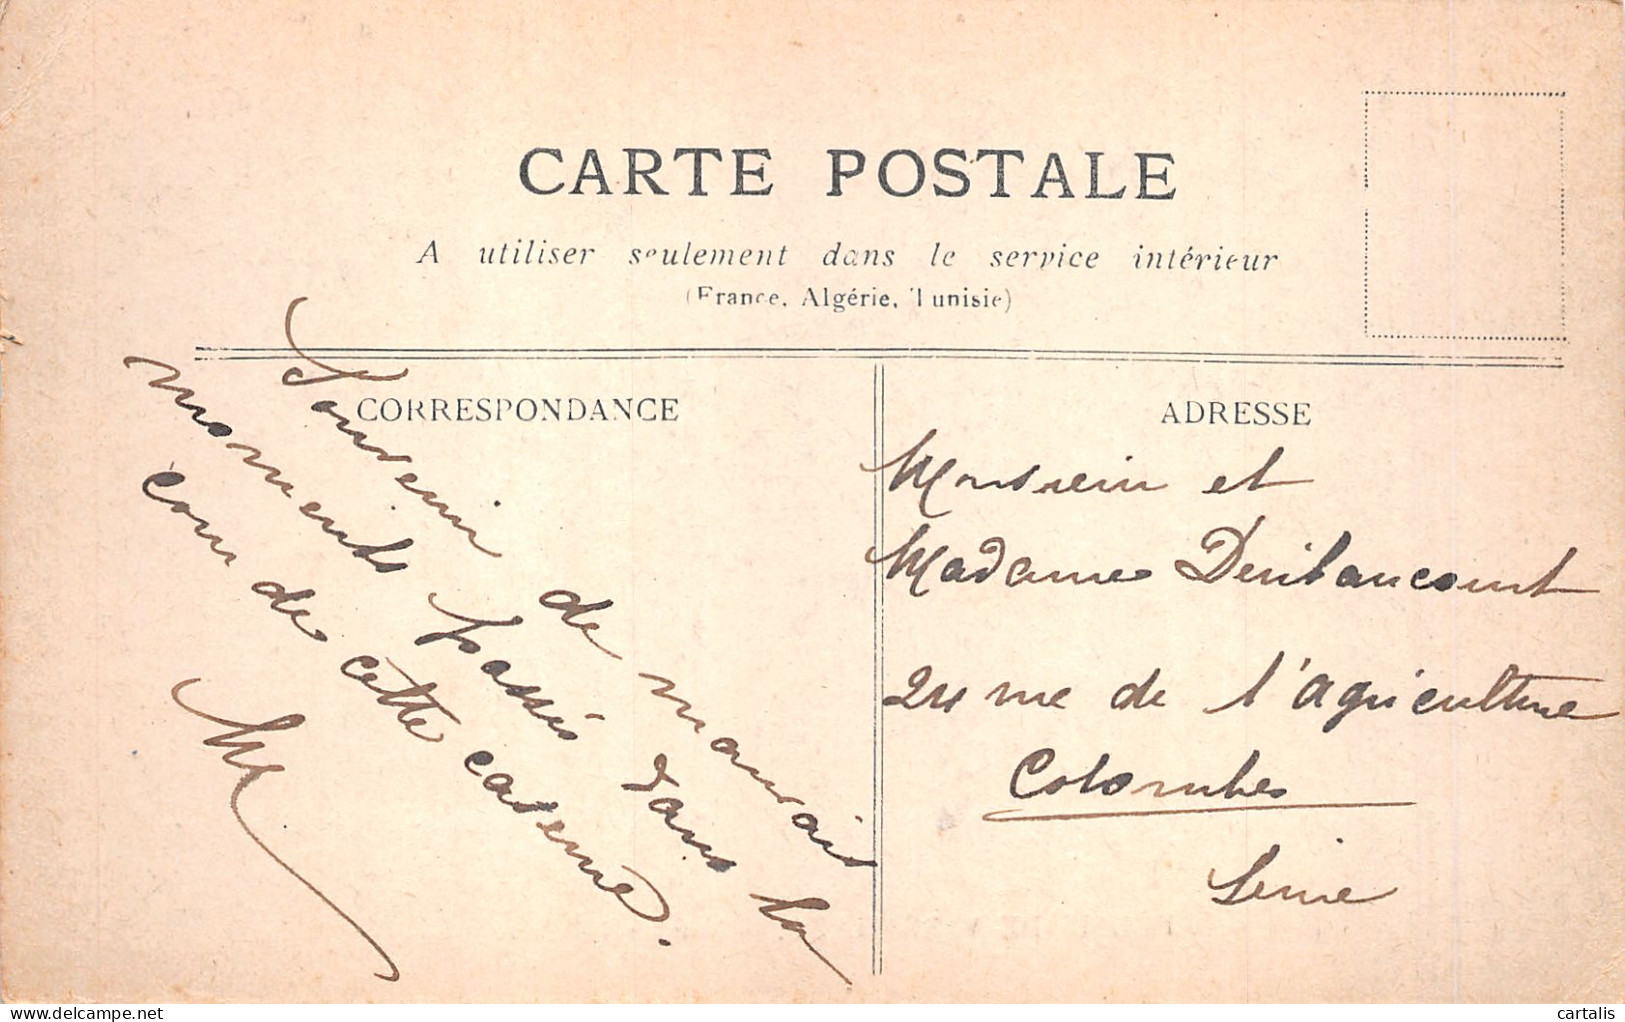 CARTE POSTALE
A utiliser seulement dans le service intérieur
(France, Algérie, Tunisie)
CORRESPONDANCE
Souvenir de mauvais
moments passés dans la
cour de cette caserne.
ADRESSE
Monsieur et
Madame
rue de l'agriculture
Colombes
Seine
www.delcampe.net
cartalis